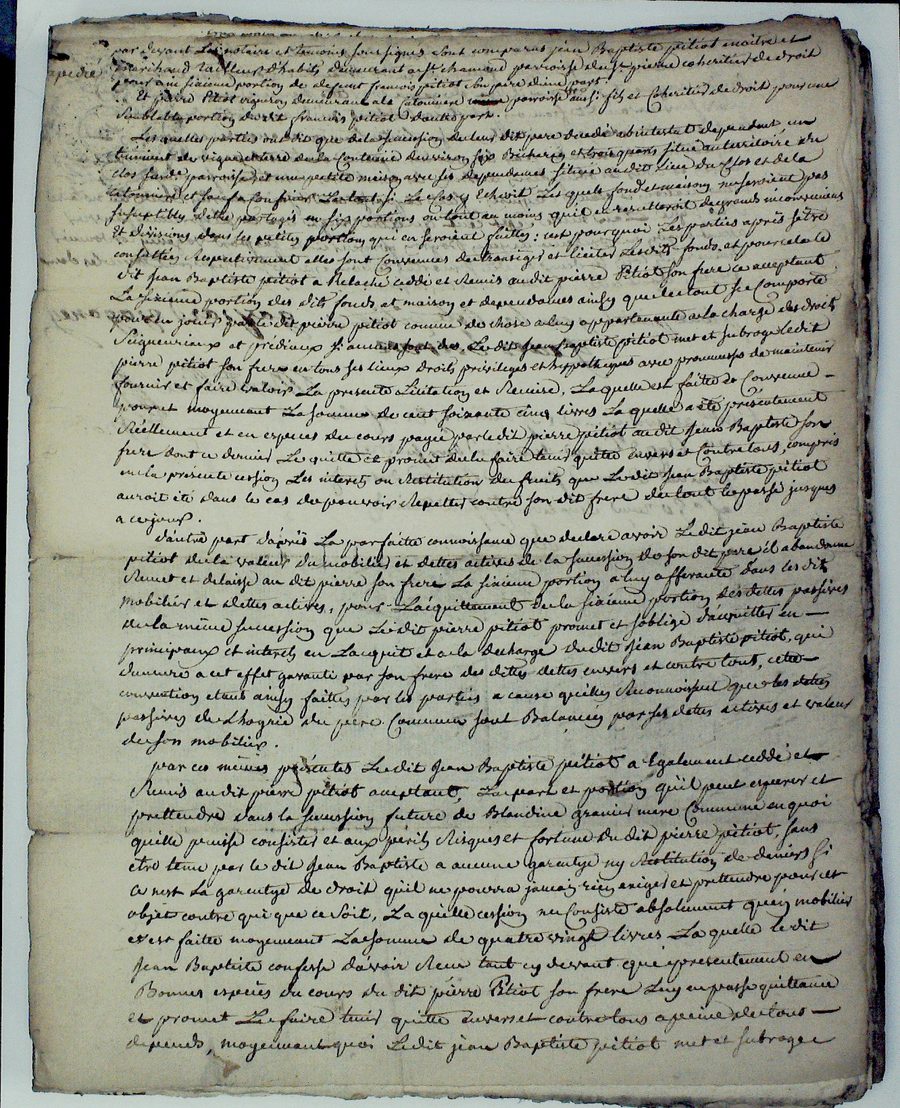 expedié
par devant Les notaire et temoins soussignés sont comparus jean Baptiste pitiot maitre et
marchand tailleur d'habits demeurant a st chamond parroisse de st pierre coheritier de droit
pour un sixieme portion de defunt françois pitiot son pere d'une part.
Et pierre Pitiot vigneron demeurant a la Calonniere parroisse aussi fils et Coheritier de droit pour une
semblable portion du dit françois pitiot d'autre part.
Lesquelles parties ont dit que de la succession de leur dit pere decedé abintestat dependent, un
tenement de vigne et terre de la Contenue d'environ six Bicherées et trois quarts situé au territoire du
Clos parroisse et une petite maison avec ses dependances située au dit lieu du Clos et de la
Lesquels fonds et maison ne seroient pas
susceptibles detre partagés en six portions ou tout au moins qu'il en resulteroit de grands inconveniens
Et divisions dans les petites portions qui en seroient faittes: cest pourquoi Les parties après s'etre
consultées Respectivement elles sont convenues de transiger et liciter Lesdits fonds, et pour cela le
dit Jean Baptiste pitiot a Relaché ceddé et Remis au dit pierre Pitiot son frere ce acceptant
La sixieme portion des dits fonds et maison et dependances ainsy que le tout se Comporte
pour en jouir par le dit pierre pitiot comme de chose a luy appartenante a la charge des droits
Seigneuriaux et prediaux Le dit Jean Baptiste pitiot met et subroge le dit
pierre pitiot son frere en tous ses lieux Droits privileges et hypotheques avec promesse de maintenir
fournir et faire valoir La presente Licitation et Remise, Laquelle est faitte de Convenue
pour et moyennant La somme de cent soixante cinq livres Laquelle a été presentement
Réellement et en especes du cours payée par le dit pierre pitiot au dit Jean Baptiste son
frere dont ce dernier Le quitte et promet de le faire tenir quitte envers et Contre tous, compris
en la presente cession Les interets ou Restitution de fruits que Le dit Jean Baptiste pitiot
auroit été dans le cas de pouvoir Repetter contre son dit frere de tout le passé jusques
a ce jour.
d'autre part d'après La parfaitte connoissance que declare avoir Le dit jean Baptiste
pitiot de la valeur du mobilier et dettes actives de la succession de son dit pere il abandonne
Remet et delaisse au dit pierre son frere La sixieme portion a luy afferante dans les dits
mobilier et dettes actives, pour L'acquittement de la sixieme portion des dettes passives
de la même succession que Le dit pierre pitiot promet et s'oblige d'acquitter en
principaux et interets en L'acquit et a la decharge du dit Jean Baptiste pitiot, qui
demeure a cet effet garanti par son frere des dittes dettes envers et contre tous, cette
convention etant ainsy faittes par les parties a cause qu'elles Reconnoissent que les dettes
passives de L'hoyrie du pere Commun sont Balancées par ses dettes actives et valeur
de son mobilier.
par ces mêmes présentes Le dit Jean Baptiste pitiot a Egalement ceddé et
Remis au dit pierre pitiot acceptant, Les part et portion qu'il peut esperer et
prettendre dans la succession future de Blandine granier mere Commune en quoi
qu'elle puisse consister et aux perils Risques et fortune du dit pierre pitiot, sans
etre tenu par le dit Jean Baptiste a aucune garentye ny Restitution de deniers si
ce n'est La garentye de droit qu'il ne pourra jamais rien exiger et prettendre pour cet
objet contre qui que ce soit, Laquelle cession ne Consiste absolument qu'en mobilier
et est faitte moyennant La somme de quatre vingt livres Laquelle le dit
Jean Baptiste confesse d'avoir Reçu tant cy devant que presentement en
Bonnes especes du cours du dit pierre Pitiot son frere Luy en passe quittance
et promet Le faire tenir quitte envers et contre tous a peine de tous
depends, moyennant quoi Le dit jean Baptiste pitiot met et subroge